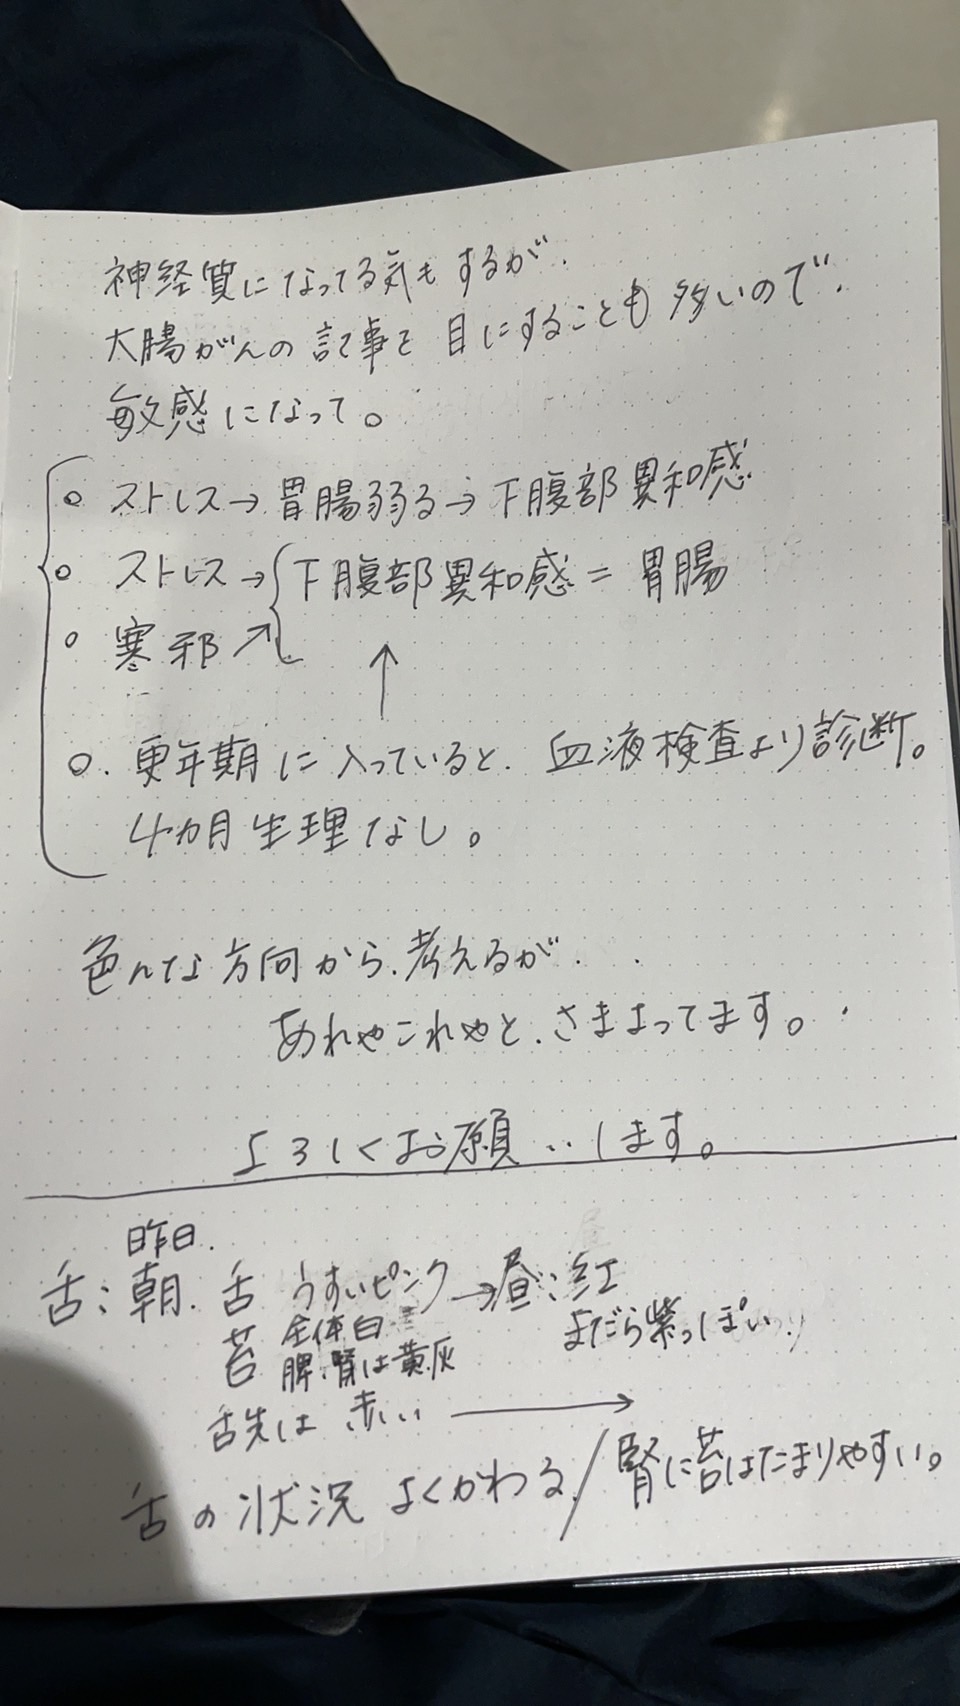 神経質になってる気もするが.
大腸がんの記事を目にすることも多いので.
敏感になって。
○ ストレス→胃腸弱る→下腹部異和感
○ ストレス→{下腹部異和感=胃腸
○ 寒邪↗
↑
○. 更年期に入っていると. 血液検査より診断。
4カ月生理なし。
色んな方向から.考えるが. .
あれやこれやと.さまよってます。.
よろしくお願いします。
昨日.
舌:朝. 舌 うすいピンク→昼:紅
苔 全体白 まだら紫っぽい.
脾.腎は黄.灰
舌先は 赤い →
舌の状況 よくかわる./腎に苔はたまりやすい。